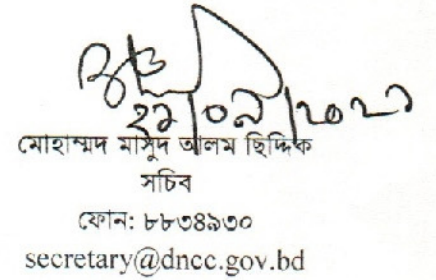 মোহাম্মদ মাসুদ আলম ছিদ্দিক
সচিব
ফোন: ৮৮৩৪৯৩০
secretary@dncc.gov.bd